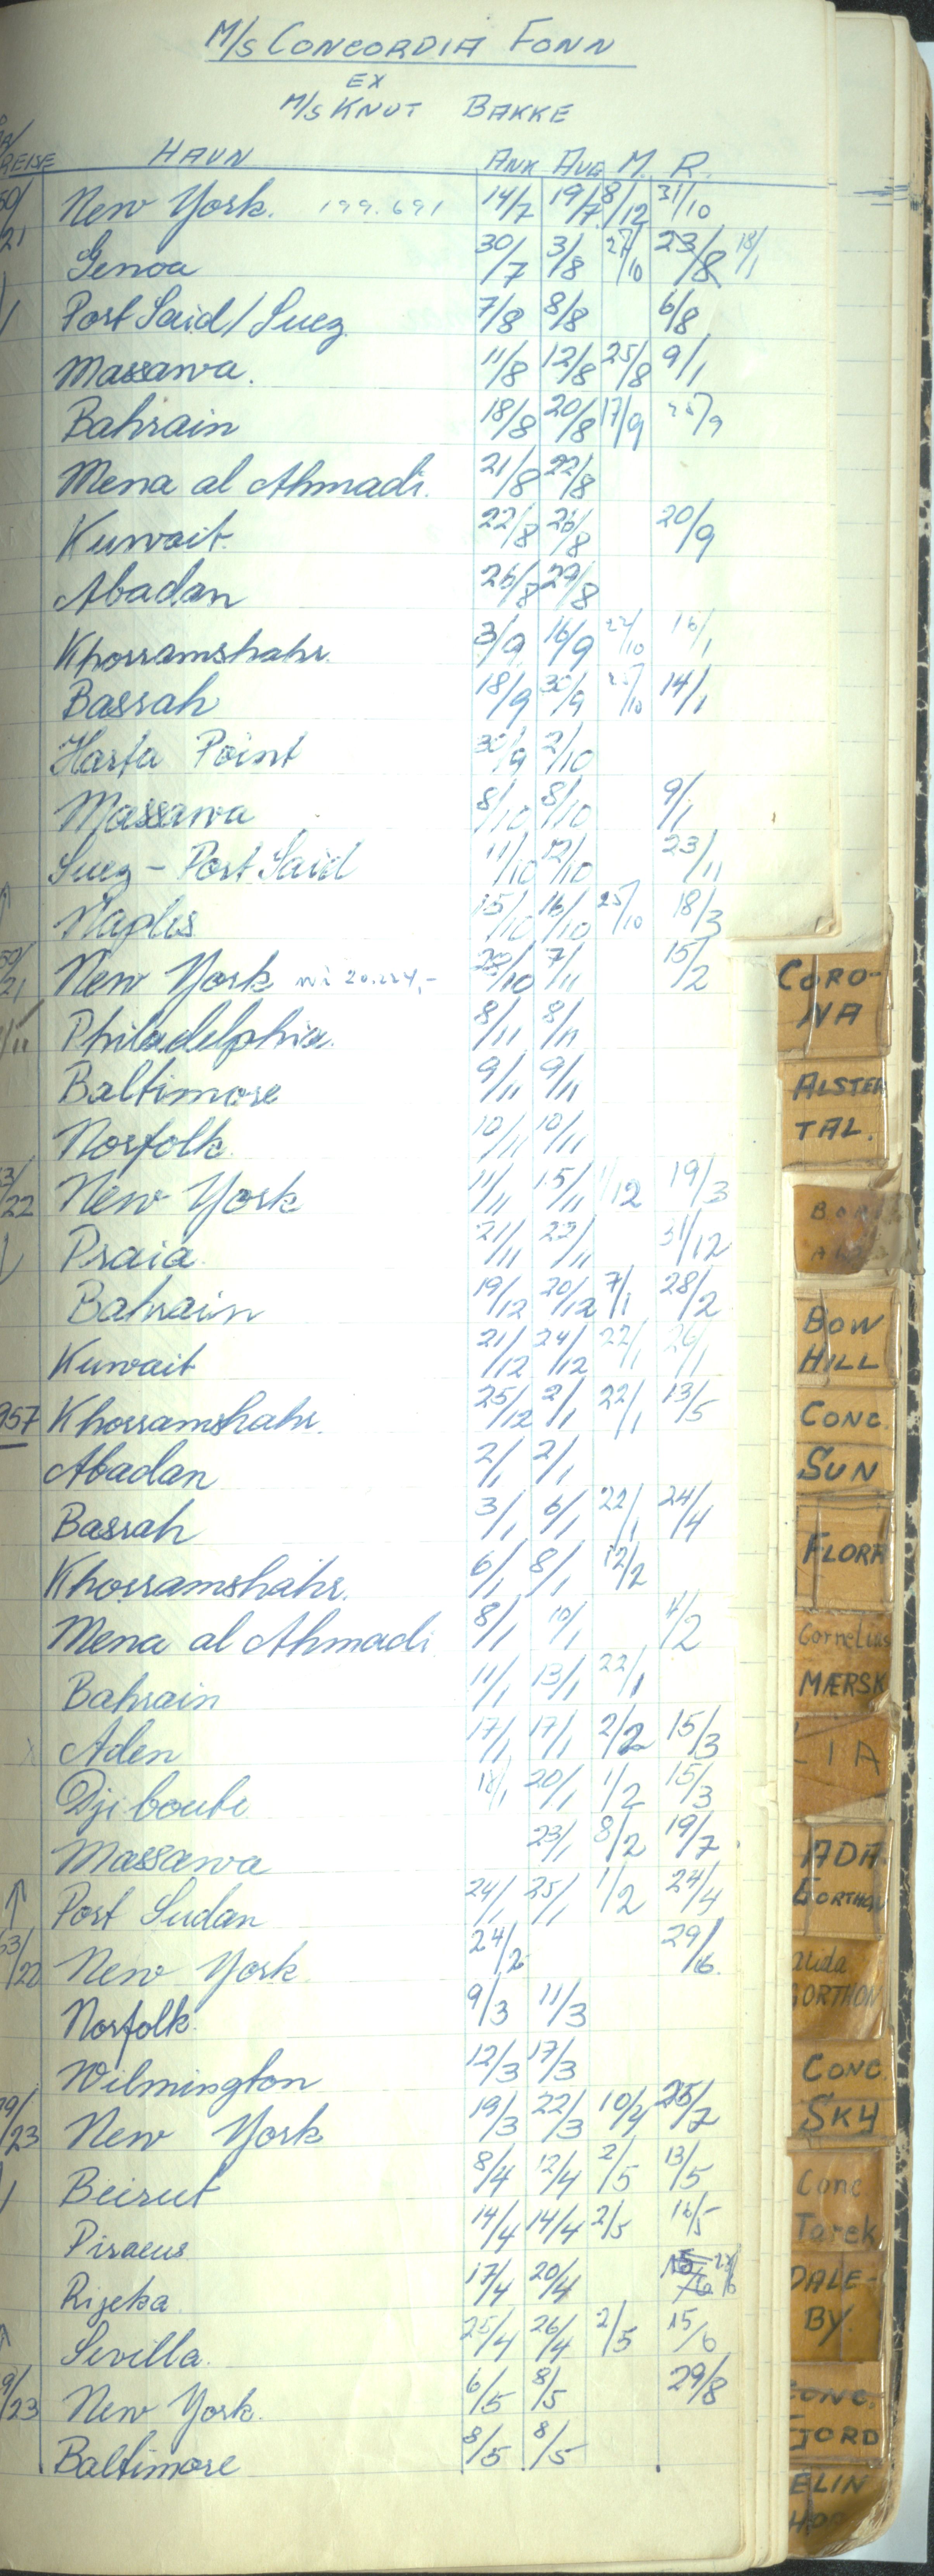 M/S CONCORDIA FONN
EX
M/S KNUT BAKKE
REISE HAVN ANK AVG M. R.
New York. 199.691 14/7 19/7 8/12 31/10
21 Genoa 30/7 3/8 27/10 23/8 18/1
Port Said/Suez 7/8 8/8 6/8
Massawa. 11/8 12/8 25/8 9/1
Bahrain 18/8 20/8 17/9 25/9
Mena al Ahmadi. 21/8 22/8
Kuwait. 22/8 26/8 20/9
Abadan 26/8 29/8
Khorramshahr. 3/9 16/9 22/10 16/1
Basrah 18/9 30/9 25/10 14/1
Harfa Point 30/9 2/10
Massawa 8/10 8/10 9/1
Suez - Port Said 11/10 12/10 23/11
Naples 15/10 16/10 25/10 18/3
50/21 New York 20.224,- 7/11 15/2
Philadelphia. 8/11 8/11
Baltimore 9/11 9/11
Norfolk. 10/11 10/11
3/22 New York 11/11 15/11 1/12 19/3
Praia 21/11 22/11 31/12
Bahrain 19/12 20/12 7/1 28/2
Kuwait 21/12 24/12 22/1 26/1
957 Khorramshahr. 25/12 2/1 22/1 13/5
Abadan 2/1 2/1
Basrah 3/1 6/1 22/1 24/4
Khorramshahr. 6/1 8/1 12/2
Mena al Ahmadi 8/1 10/1 4/2
Bahrain 11/1 13/1 22/1
Aden 17/1 17/1 2/2 15/3
Djibouti 18/1 20/1 1/2 15/3
Massawa 23/1 8/2 19/7
Port Sudan 24/1 25/1 1/2 24/4
63/22 New York 24/2 29/6
Norfolk. 9/3 11/3
Wilmington 12/3 17/3
19/23 New York 19/3 22/3 10/4 25/2
Beirut 8/4 12/4 2/5 13/5
Piraeus 14/4 14/4 2/5 16/5
Rijeka 17/4 20/4
Sevilla. 25/4 26/4 2/5 15/6
9/23 New York. 6/5 8/5 29/8
Baltimore 8/5 8/5
CORO-
NA
ALSTER
TAL.
BOW
HILL
CONC.
SUN
FLORA
Cornelius
MÆRSK
LIA
ADA
GORTHON
Alida
GORTHON
CONC
SKY
Conc
Tarek
DALE-
BY.
CONC.
FJORD
ELIN